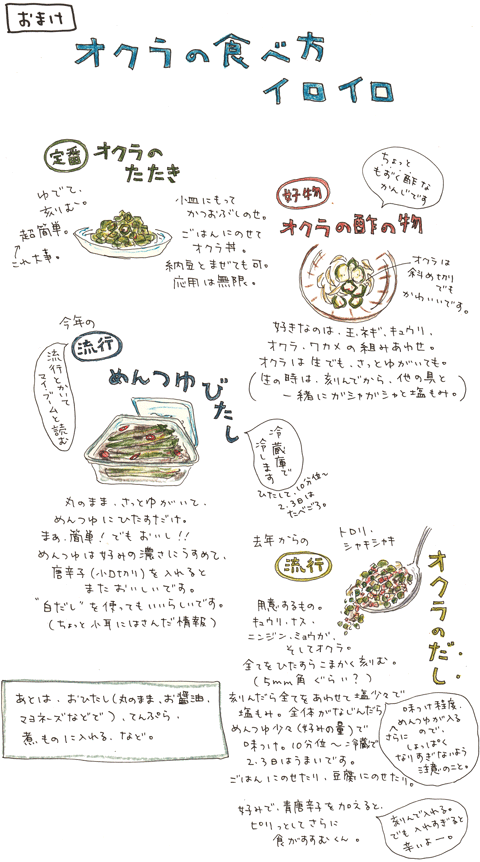 おまけ
オクラの食べ方
イロイロ
定番
オクラの
たたき
ゆでて、
刻むー。
超簡単。
これ大事。
小皿にもって
かつおぶしのせ。
ごはんにのせて
オクラ丼。
納豆とまぜても可。
応用は無限。
ちょっと
もずく酢な
かんじです
好物
オクラの酢の物
オクラは
斜め切り
でも
かわいいです。
好きなのは、玉ネギ、キュウリ、
オクラ、ワカメの組みあわせ。
オクラは生でも、さっとゆがいても。
(生の時は、刻んでから、他の具と
一緒にガシャガシャと塩もみ。)
今年の
流行
流行とかいて
マイブームと読む
めんつゆ
びたし
冷蔵庫で
冷します
ひたして、10分位〜
2、3日は
たべごろ。
丸のまま、さっとゆがいて、
めんつゆにひたすだけ。
まあ、簡単!でもおいし!!
めんつゆは好みの濃さにうすめて、
唐辛子(小口切り)を入れると
またおいしいです。
"白だし"を使ってもいいらしいです。
(ちょっと小耳にはさんだ情報)
去年からの
流行
トロリ、
シャキシャキ
オクラのだし
用意するもの。
キュウリ、ナス、
ニンジン、ミョウガ、
そしてオクラ。
全てをひたすらこまかく刻む。
(5mm角ぐらい?)
刻んだら全てをあわせて塩少々で
塩もみ。全体がなじんだら
めんつゆ少々(好みの量)で
味つけ。10分位〜冷蔵で
2、3日はうまいです。
ごはんにのせたり、豆腐にのせたり。
味つけ程度、
さらにめんつゆが入る
ので、
しょっぱく
なりすぎないよう
注意のこと。
好みで、青唐辛子を加えると、
ピリっとしてさらに
食がすすむくん。
刻んで入れる。
でも入れすぎると
辛いよー。
あとは、おひたし(丸のまま、お醤油、
マヨネーズなどで)、てんぷら、
煮ものに入れる、など。